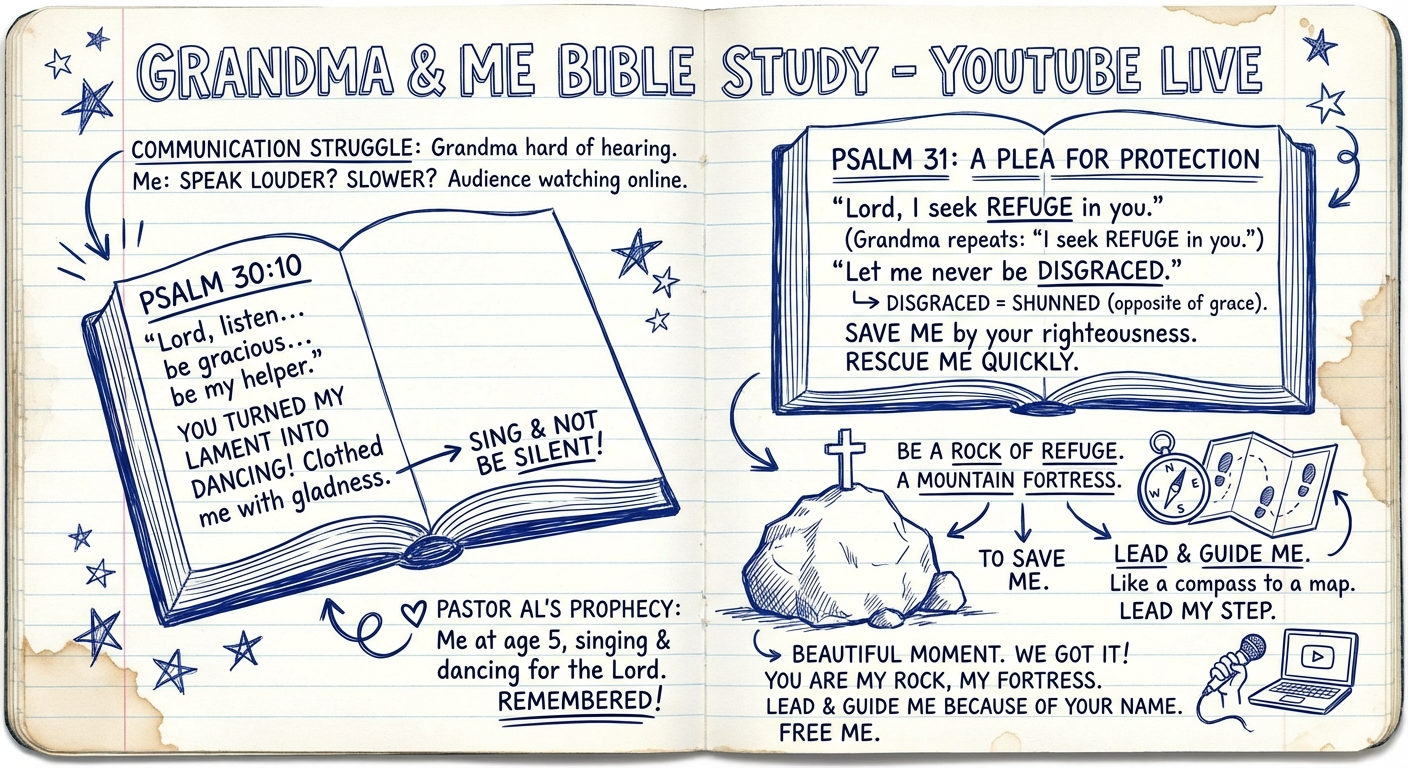 GRANDMA & ME BIBLE STUDY - YOUTUBE LIVE
COMMUNICATION STRUGGLE: Grandma hard of hearing.
Me: SPEAK LOUDER? SLOWER? Audience watching online.
PSALM 30:10
"Lord, listen...
be gracious...
be my helper."
YOU TURNED MY
LAMENT INTO
DANCING! Clothed
me with gladness.
SING & NOT
BE SILENT!
PASTOR AL'S PROPHECY:
Me at age 5, singing &
dancing for the Lord.
REMEMBERED!
PSALM 31: A PLEA FOR PROTECTION
"Lord, I seek REFUGE in you."
(Grandma repeats: "I seek REFUGE in you.")
"Let me never be DISGRACED."
DISGRACED = SHUNNED (opposite of grace).
SAVE ME by your righteousness.
RESCUE ME QUICKLY.
BE A ROCK OF REFUGE.
A MOUNTAIN FORTRESS.
N
W E
S
TO SAVE
ME.
LEAD & GUIDE ME.
Like a compass to a map.
LEAD MY STEP.
BEAUTIFUL MOMENT. WE GOT IT!
YOU ARE MY ROCK, MY FORTRESS.
LEAD & GUIDE ME BECAUSE OF YOUR NAME.
FREE ME.